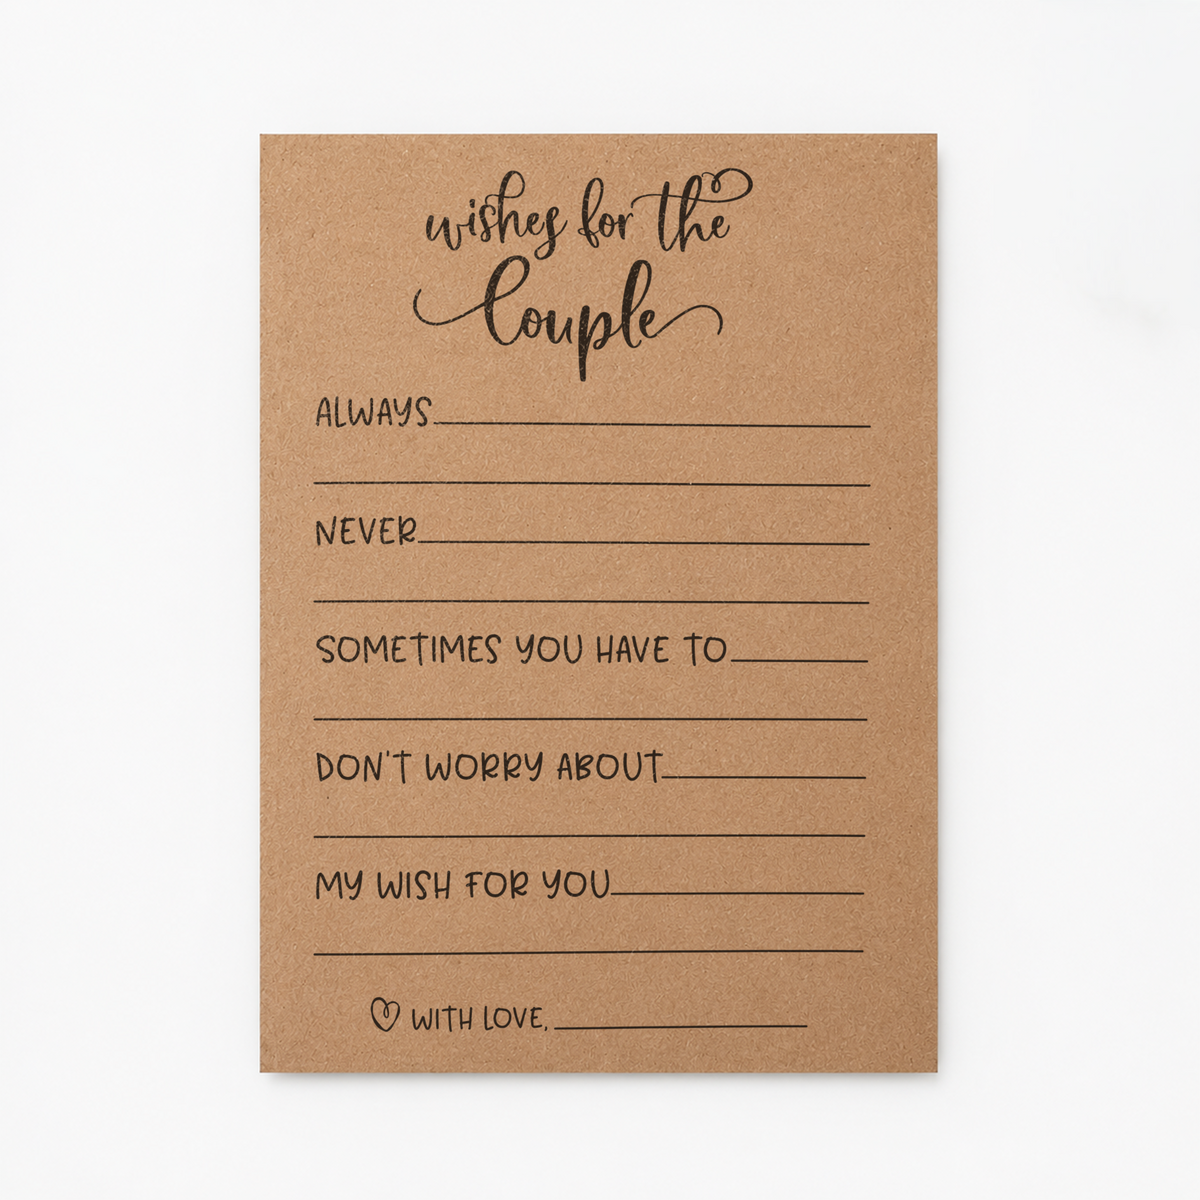 wishes for the
Couple
ALWAYS
NEVER
SOMETIMES YOU HAVE TO
DON'T WORRY ABOUT
MY WISH FOR YOU
WITH LOVE,